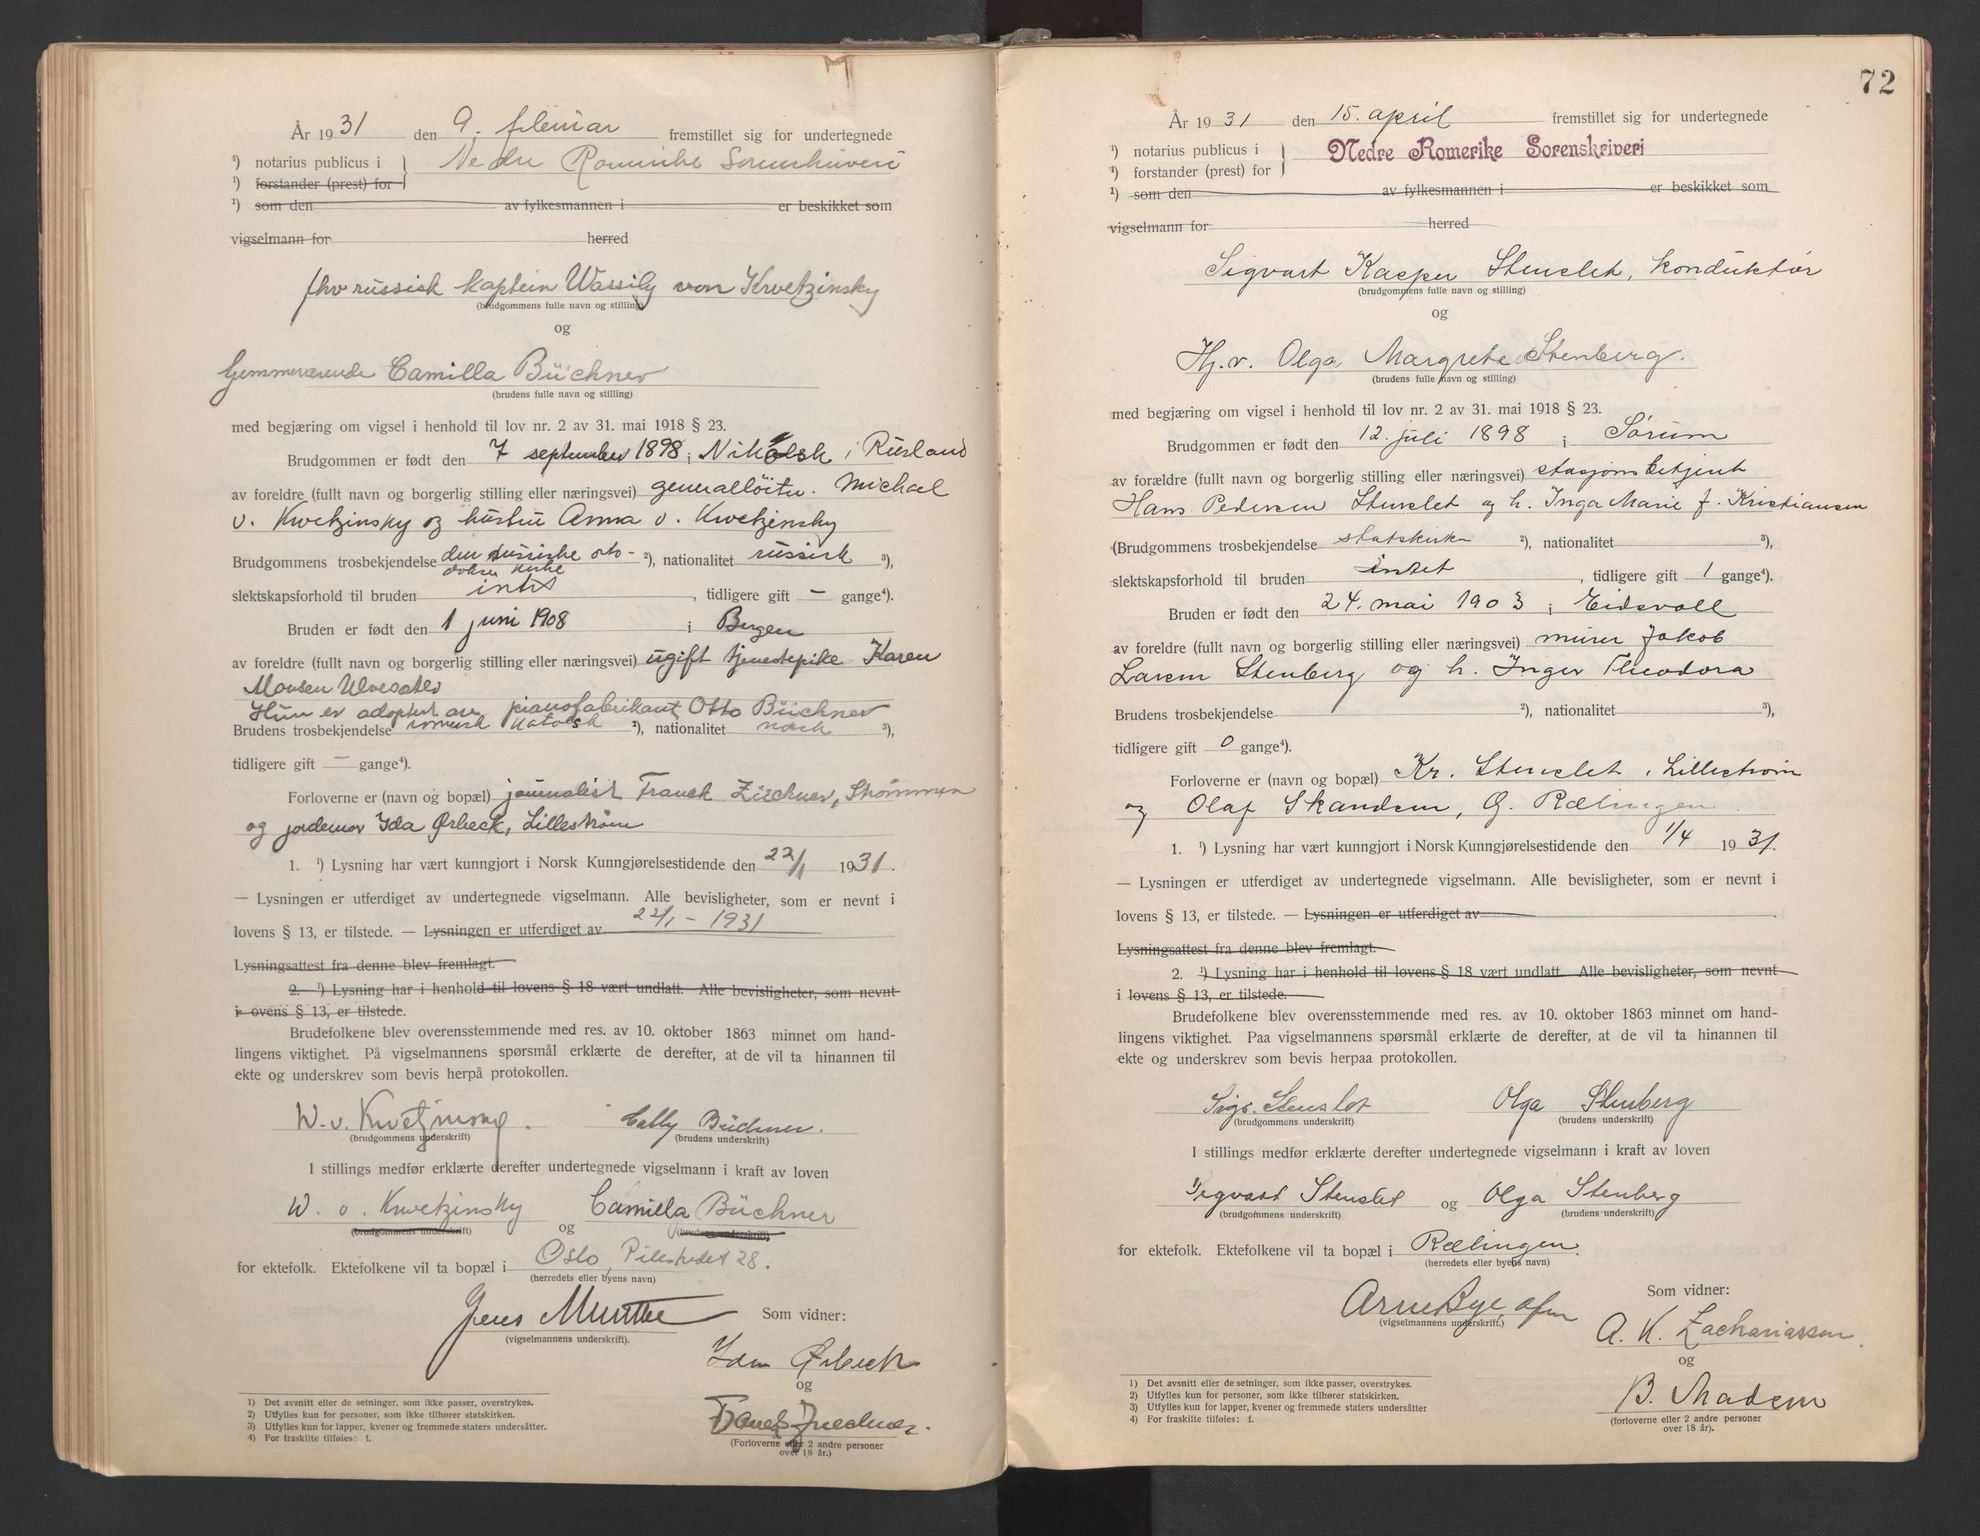 År 1931 den 9. februar fremstillet sig for undertegnede
¹) notarius publicus i } Nedre Romerike Sorenskriveri
¹) forstander (prest) for
¹) som den av fylkesmannen i er beskikket som
vigselmann for herred
fhv russisk kaptein Wassily von Kwetzinsky
(brudgommens fulle navn og stilling)
og
hjemmeværende Camilla Büchner
(brudens fulle navn og stilling)
med begjæring om vigsel i henhold til lov nr. 2 av 31. mai 1918 § 23.
Brudgommen er født den 7 september 1898 i Nikolsk i Rusland
av foreldre (fullt navn og borgerlig stilling eller næringsvei) generalløitn. Michael
v. Kwetzinsky og hustru Anna v. Kwetzinsky
Brudgommens trosbekjendelse den russiske orto- ²), nationalitet russisk ³),
dokse kirke
slektskapsforhold til bruden intet, tidligere gift — gange⁴).
Bruden er født den 1 juni 1908 i Bergen
av foreldre (fullt navn og borgerlig stilling eller næringsvei) ugift tjenestepike Karen
Monsen
Hun er adoptert av pianofabrikant Otto Büchner
Brudens trosbekjendelse romersk katolsk ²), nationalitet norsk ³),
tidligere gift — gange⁴).
Forloverne er (navn og bopæl) journalist Franck Zischner, Strømmen
og jordemor Ida Ørbeck, Lillestrøm
1. ¹) Lysning har vært kunngjort i Norsk Kunngjørelsestidende den 22/1 1931.
— Lysningen er utferdiget av undertegnede vigselmann. Alle bevisligheter, som er nevnt i
lovens § 13, er tilstede. — Lysningen er utferdiget av 22/1 - 1931
Lysningsattest fra denne blev fremlagt.
2. ¹) Lysning har i henhold til lovens § 18 vært undlatt. Alle bevisligheter, som nevnt
i ovens § 13, er tilstede.
Brudefolkene blev overensstemmende med res. av 10. oktober 1863 minnet om hand-
lingens viktighet. På vigselmannens spørsmål erklærte de derefter, at de vil ta hinannen til
ekte og underskrev som bevis herpå protokollen.
W. v. Kwetzinsky. Cally Büchner.
(brudgommens underskrift) (brudens underskrift)
I stillings medfør erklærte derefter undertegnede vigselmann i kraft av loven
W. v. Kwetzinsky og Camilla Büchner
(brudgommens underskrift) (brudens underskrift)
for ektefolk. Ektefolkene vil ta bopæl i Oslo, Pilestredet 28.
(herredets eller byens navn)
Jens Munthe Som vidner:
(vigselmannens underskrift).
Ida Ørbeck
og
Franck Zischner.
(Forloverne eller 2 andre personer
over 18 år.)
1) Det avsnitt eller de setninger, som ikke passer, overstrykes.
2) Utfylles kun for personer, som ikke tilhører statskirken.
3) Utfylles kun for lapper, kvener og fremmede staters undersåtter.
4) For fraskilte tilføies: f.
72
År 1931 den 15. april fremstillet sig for undertegnede
¹) notarius publicus i } Nedre Romerike Sorenskriveri
¹) forstander (prest) for
¹) som den av fylkesmannen i er beskikket som
vigselmann for herred
Sigvart Kasper Stenslet, konduktør
(brudgommens fulle navn og stilling)
og
Hj.v. Olga Margrete Stenberg.
(brudens fulle navn og stilling)
med begjæring om vigsel i henhold til lov nr. 2 av 31. mai 1918 § 23.
Brudgommen er født den 12. juli 1898 i Sørum
av forældre (fullt navn og borgerlig stilling eller næringsvei) stasjonsbetjent
Hans Pedersen Stenslet og h. Inga Marie f. Kristiansen
(Brudgommens trosbekjendelse statskirken ²), nationalitet ³),
slektskapsforhold til bruden intet, tidligere gift 1 gange⁴).
Bruden er født den 24. mai 1903 i Eidsvoll
av foreldre (fullt navn og borgerlig stilling eller næringsvei) murer Jakob
Larsen Stenberg og h. Inger Theodora
Brudens trosbekjendelse ²), nationalitet ³),
tidligere gift 0 gange⁴).
Forloverne er (navn og bopæl) Kr. Stenslet, Lillestrøm
og Olaf Skandsen, G. Rælingen.
1. ¹) Lysning har vært kunngjort i Norsk Kunngjørelsestidende den 1/4 1931.
— Lysningen er utferdiget av undertegnede vigselmann. Alle bevisligheter, som er nevnt i
lovens § 13, er tilstede. — Lysningen er utferdiget av
Lysningsattest fra denne blev fremlagt.
2. ¹) Lysning har i henhold til lovens § 18 vært undlatt. Alle bevisligheter, som nevnt
i lovens § 13, er tilstede.
Brudefolkene blev overensstemmende med res. av 10. oktober 1863 minnet om hand-
lingens viktighet. Paa vigselmannens spørsmål erklærte de derefter, at de vil ta hinannen til
ekte og underskrev som bevis herpaa protokollen.
Sigv. Stenslet Olga Stenberg
(brudgommens underskrift) (brudens underskrift)
I stillings medfør erklærte derefter undertegnede vigselmann i kraft av loven
Sigvart Stenslet og Olga Stenberg
(brudgommens underskrift) (brudens underskrift)
for ektefolk. Ektefolkene vil ta bopæl i Rælingen.
(herredets eller byens navn)
Som vidner:
Arne Bye, ofm
(vigselmannens underskrift.)
A. K. Zachariassen.
og
B. Madsen
(forloverne eller 2 andre personer
over 18 år).
1) Det avsnitt eller de setninger, som ikke passer, overstrykes.
2) Utfylles kun for personer, som ikke tilhører statskirken.
3) Utfylles kun for lapper, kvener og fremmede staters undersåtter
4) For fraskilte tilføies: f.